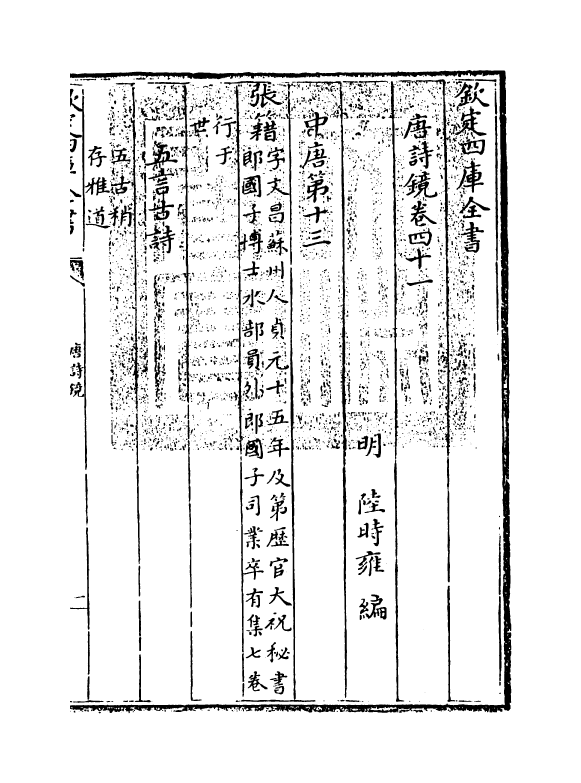 欽定四庫全書
唐詩鏡卷四十一
明 陸時雍 編
中唐第十三
張籍字文昌蘇州人貞元十五年及第歷官大祝秘書
郎國子博士水部員外郎國子司業卒有集七卷
行于
世
五言古詩
五古稍
存雅道
欽定四庫全書
唐詩鏡